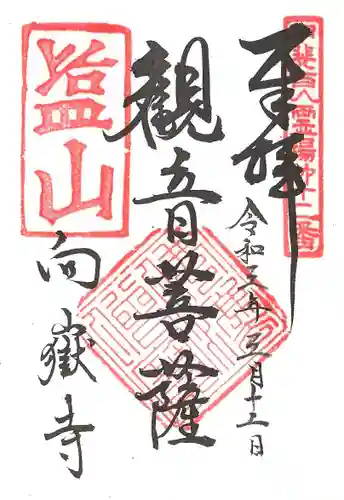 甲斐百八霊場第十二番
奉拝
令和三年三月十三日
観音菩薩
塩山
向嶽寺